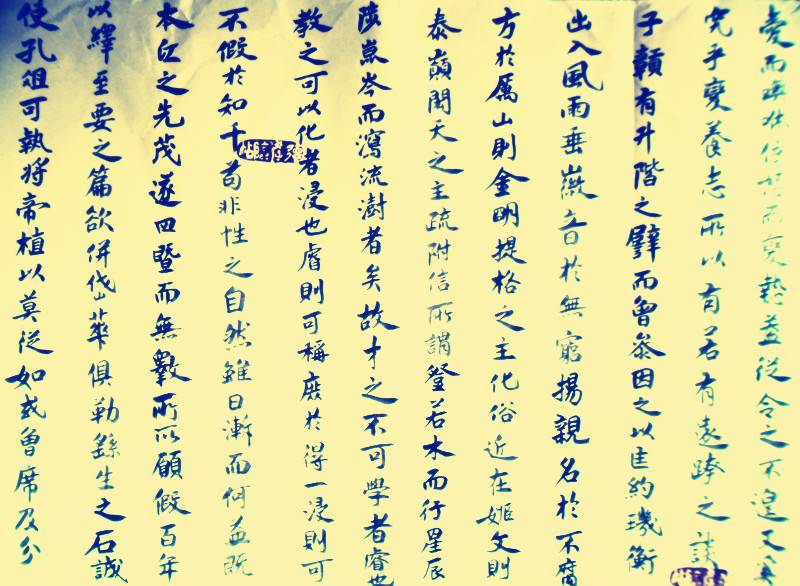 而從令之不遑又
究乎變養志所以有若有遠之談
子有升階之譬而曾參因之以匡約璣衡
出入風雨垂徽音於無窮揚親名於不腐
方於厲山則金明提格之主化俗近在姬文則
泰巔閎天之主疏附信所謂登若木而行星辰
陟崑岑而瀉流澍者矣故才之不可學者睿也
教之可以化者浸也睿則可稱庶於得一浸則可
不假於知千苟非性之自然雖日漸而何益既
本江之先茂遂四暨而無斁所以願假百年
以繹至要之篇欲併岱華俱勒繇生之石誠
使孔俎可執將帝植以莫從如或曾席及分